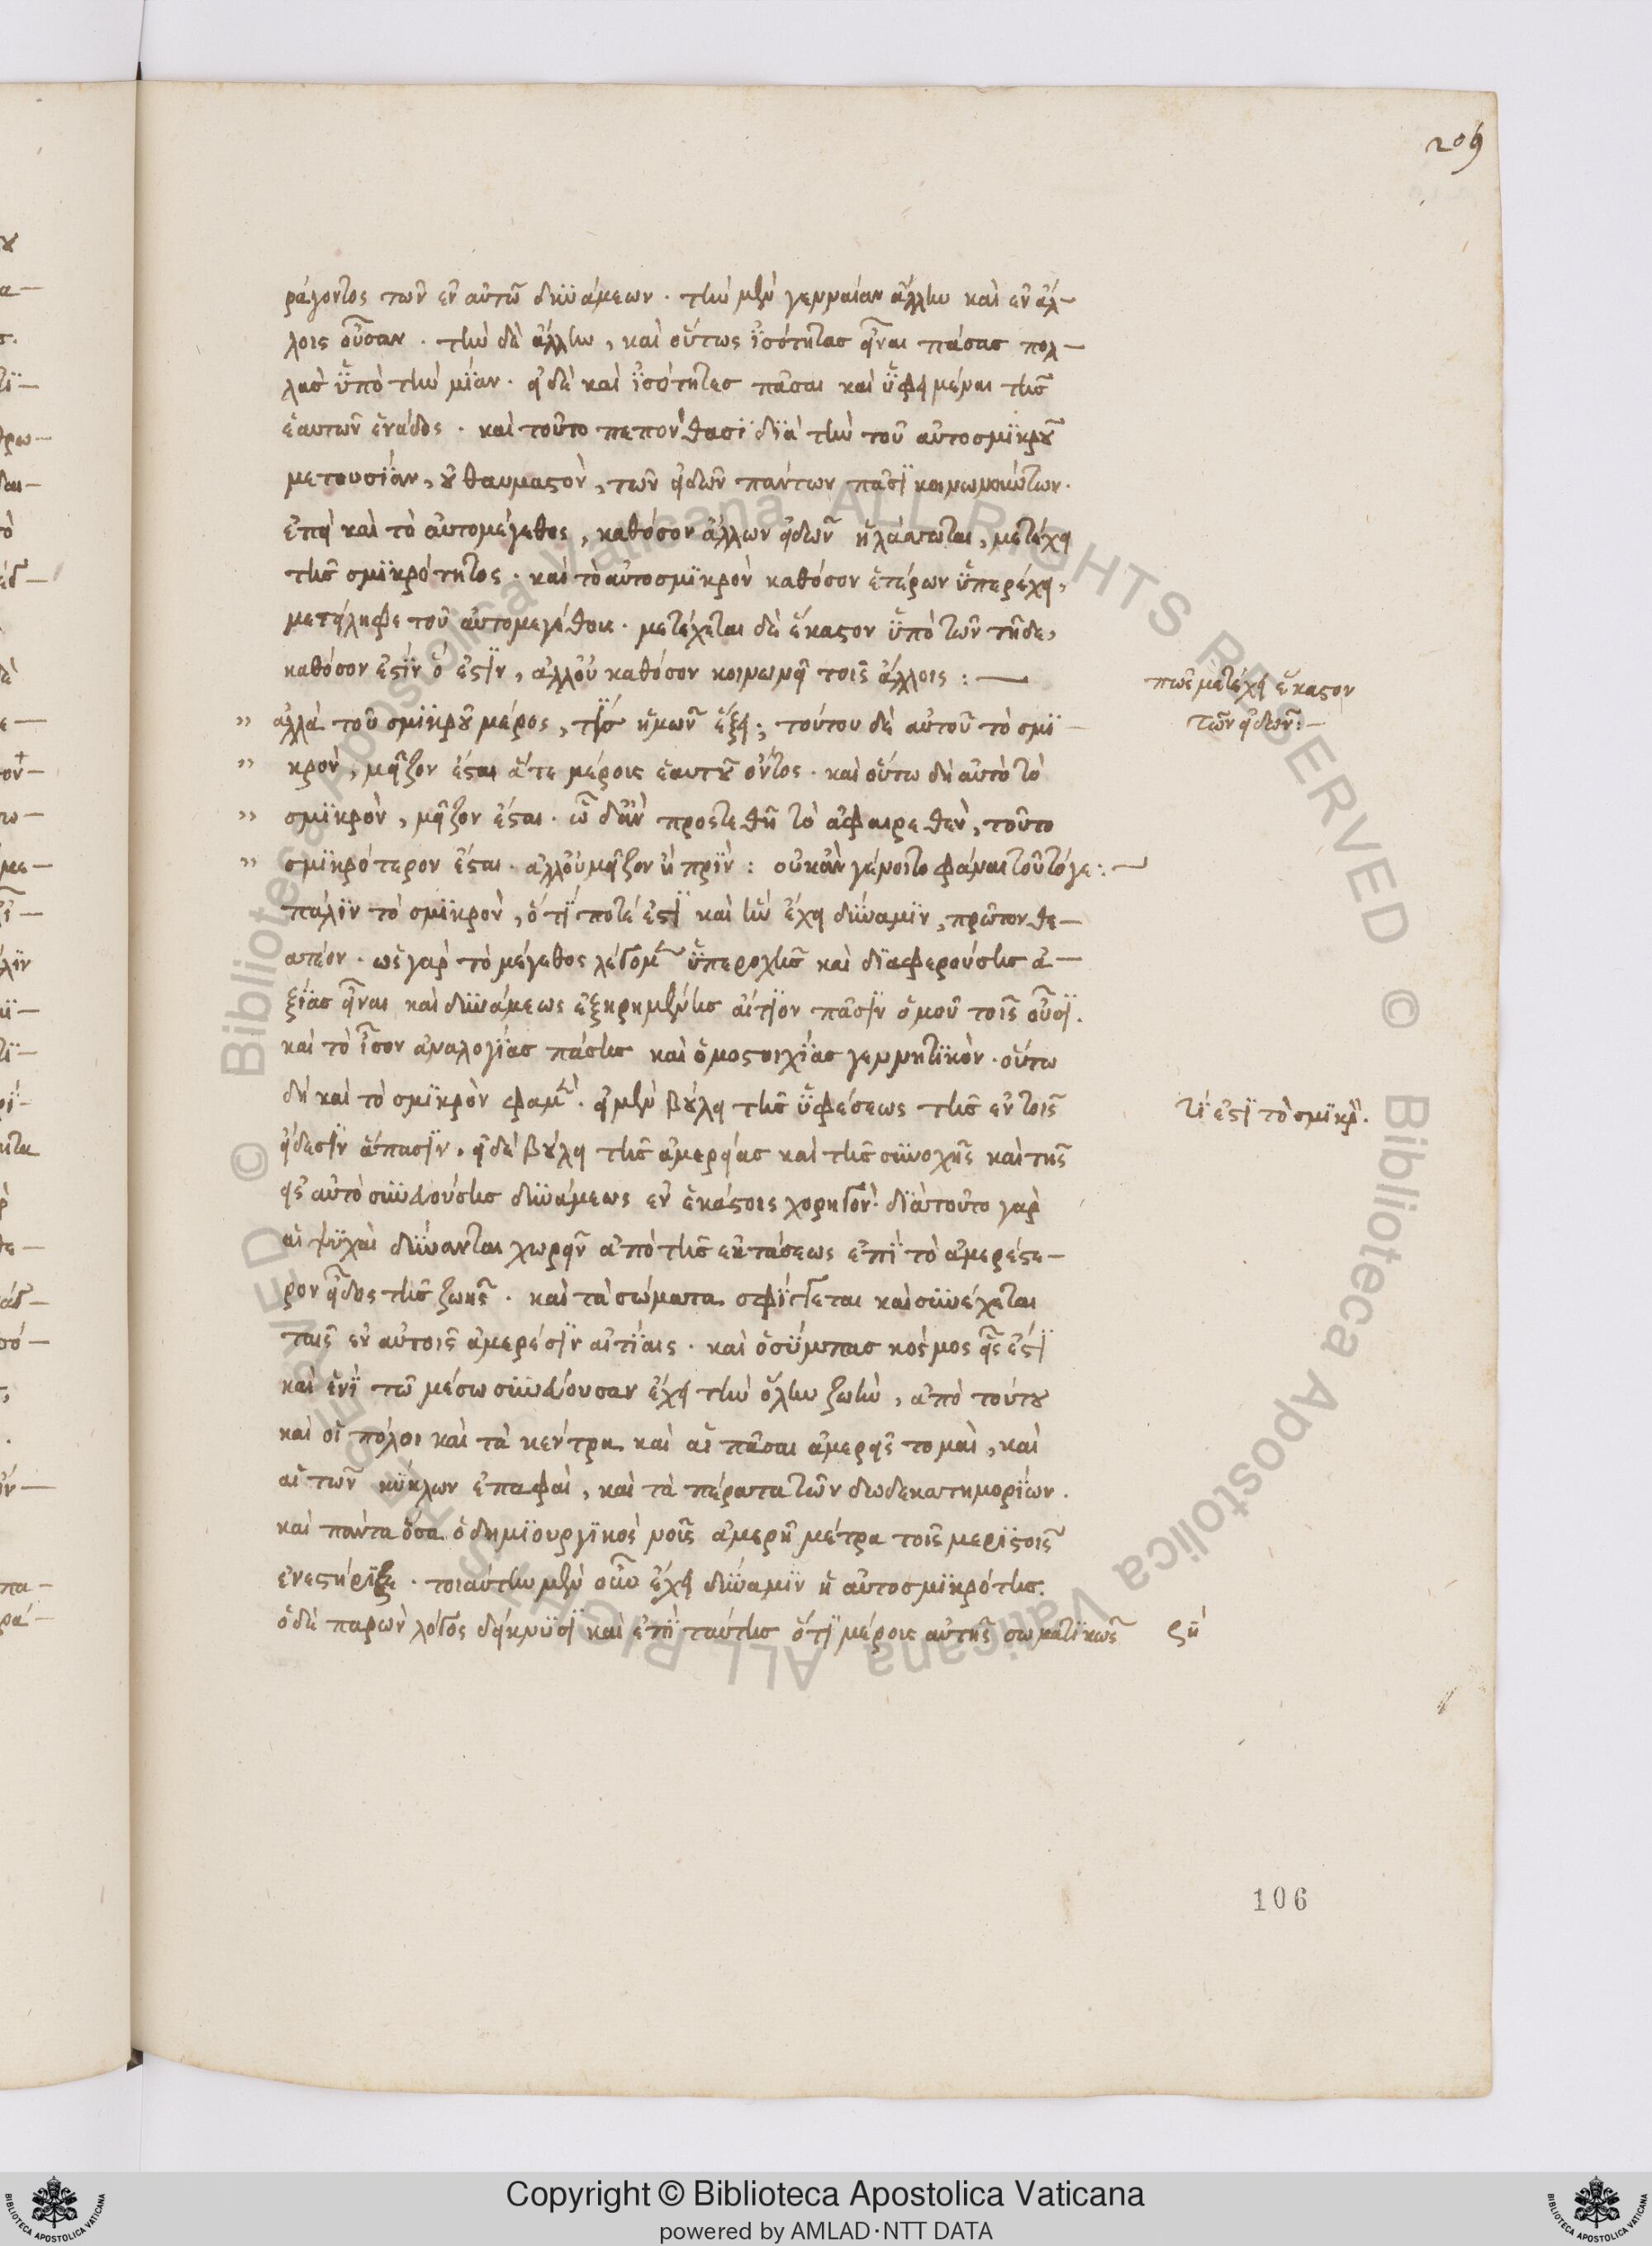 209
ράγοντος τῶν ἐν αὐτῷ δυνάμεων. τὴν μὲν γενναίαν ἄλλην καὶ ἐν ἄλ-
λοις οὖσαν. τὴν δὲ ἄλλην, καὶ οὕτως ἰσότητας εἶναι πάσας πολ-
λὰς ὑπὸ τὴν μίαν. εἰ δὲ καὶ ἰσότητες πᾶσαι καὶ ὑφειμέναι τῆς
ἑαυτῶν ἑνάδος. καὶ τοῦτο πεπόνθασι διὰ τὴν τοῦ αὐτοσμικροῦ
μετουσίαν, οὐ θαυμαστὸν, τῶν εἰδῶν πάντων πᾶσι κοινωνούντων.
ἐπεὶ καὶ τὸ αὐτομέγεθος, καθόσον ἄλλων εἰδῶν ἠλάττωται, μετέχει
τῆς σμικρότητος. καὶ τὸ αὐτοσμικρὸν καθόσον ἑτέρων ὑπερέχει,
μετείληφε τοῦ αὐτομεγέθους. μετέχεται δὲ ἕκαστον ὑπὸ τῶν τῇδε,
καθόσον ἐστὶν ὅ ἐστιν, ἀλλ' οὐ καθόσον κοινωνεῖ τοῖς ἄλλοις:—
πῶς μετέχει ἕκαστον
τῶν εἰδῶν:—
" ἀλλὰ τοῦ σμικροῦ μέρος, τίς ἡμῶν ἕξει; τούτου δὲ αὐτοῦ τὸ σμι-
" κρὸν, μεῖζον ἔσται ἅτε μέρους ἑαυτοῦ ὄντος. καὶ οὕτω δὴ αὐτὸ τὸ
" σμικρὸν, μεῖζον ἔσται. ᾧ δ' ἂν προστεθῇ τὸ ἀφαιρεθὲν, τοῦτο
" σμικρότερον ἔσται. ἀλλ' οὐ μεῖζον ἢ πρὶν: οὐκ ἂν γένοιτο φάναι τοῦτό γε:—
πάλιν τὸ σμικρὸν, ὅ τί ποτέ ἐστι καὶ ἣν ἔχει δύναμιν, πρῶτον θε-
ατέον. ὡς γὰρ τὸ μέγεθος λέγομεν ὑπεροχῆς καὶ διαφερούσης ἀ-
ξίας εἶναι καὶ δυνάμεως ἐξῃρημένης αἴτιον πᾶσιν ὁμοῦ τοῖς οὖσι.
καὶ τὸ ἴσον ἀναλογίας πάσης καὶ ὁμοστοιχίας γεννητικὸν. οὕτω
δὴ καὶ τὸ σμικρὸν φαμὲν. εἰ μὲν βούλει τῆς ὑφέσεως τῆς ἐν τοῖς
τί ἐστι τὸ σμικρὸν.
εἴδεσιν ἅπασιν. εἰ δὲ βούλει τῆς ἀμερείας καὶ τῆς συνοχῆς καὶ τῆς
εἰς αὐτὸ συνιούσης δυνάμεως ἐν ἑκάστοις χορηγὸν. διὰ τοῦτο γὰρ
αἱ ψυχαὶ δύνανται χωρεῖν ἀπὸ τῆς ἐκτάσεως ἐπὶ τὸ ἀμερέστε-
ρον εἶδος τῆς ζωῆς. καὶ τὰ σώματα σφίγγεται καὶ συνέχεται
ταῖς ἐν αὐτοῖς ἀμερέσιν αἰτίαις. καὶ ὁ σύμπας κόσμος εἷς ἐστι
καὶ ἑνὶ τῷ μέσω συνιοῦσαν ἔχει τὴν ὅλην ζωὴν, ἀπὸ τούτου
καὶ οἱ πόλοι καὶ τὰ κέντρα καὶ αἱ πᾶσαι ἀμερεῖς τομαὶ, καὶ
αἱ τῶν κύκλων ἐπαφαὶ, καὶ τὰ πέρατα τῶν δωδεκατημορίων.
καὶ πάντα ὅσα ὁ δημιουργικὸς νοῦς ἀμερῆ μέτρα τοῖς μεριστοῖς
ἐνεστήριξε. τοιαύτην μὲν οὖν ἔχει δύναμιν ἡ αὐτοσμικρότης.
ὁ δὲ παρὼν λόγος δείκνυσι καὶ ἐπὶ ταύτης ὅτι μέρους αὐτῆς σωματικῶς
106